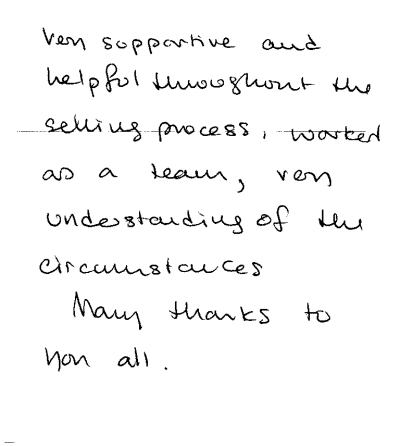 Very supportive and
helpful throughout the
selling process, worked
as a team, very
understanding of the
circumstances
Many thanks to
you all.